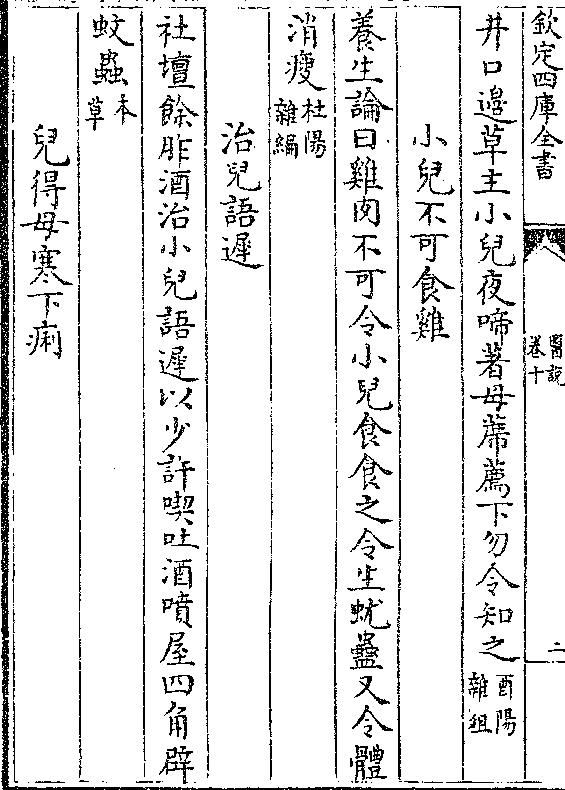 欽定四庫全書
醫說
卷十
二
井口邉草主小兒夜啼著母蓆薦下勿令知之酉陽
雜俎
小兒不可食雞
養生論曰雞肉不可令小兒食食之令生蚘蠱又令體
消瘦杜陽
雜編
治兒語遲
社壇餘胙酒治小兒語遲以少許喫吐酒噴屋四角辟
蚊蟲本
草
兒得母寒下痢